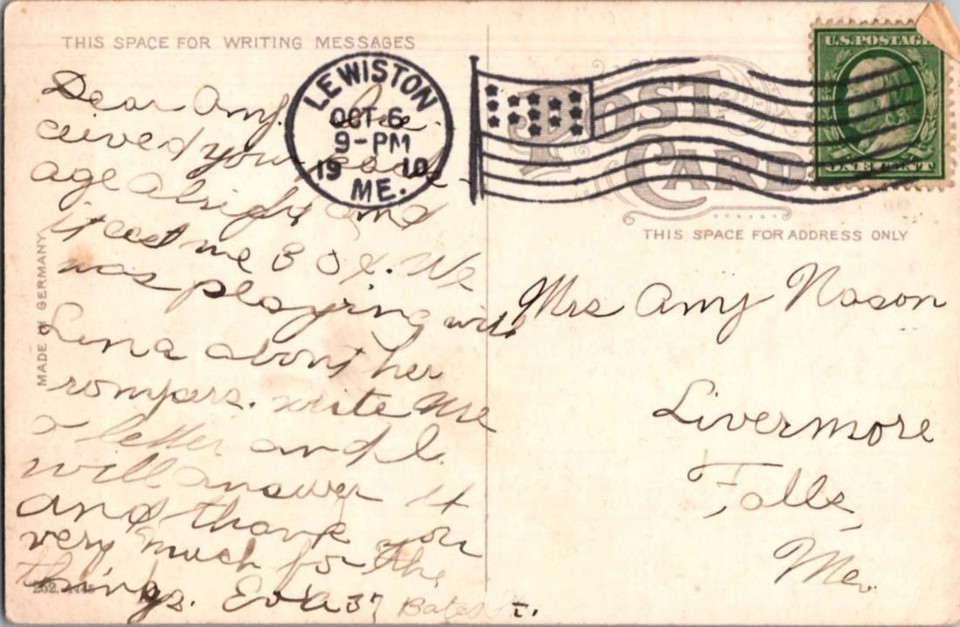 THIS SPACE FOR WRITING MESSAGES
Dear Amy.
ceived your
age alright and
it cost me 30¢. We
was playing with
Lena about her
rompers. write me
a letter and I
will answer it
and thank you
very much for the
things. Eva 37 Bates St.
MADE IN GERMANY
LEWISTON
OCT 6
9-PM
1910
ME.
U.S. POSTAGE
ONE CENT
POST
CARD
THIS SPACE FOR ADDRESS ONLY
Mrs Amy Nason
Livermore
Falls,
Me.